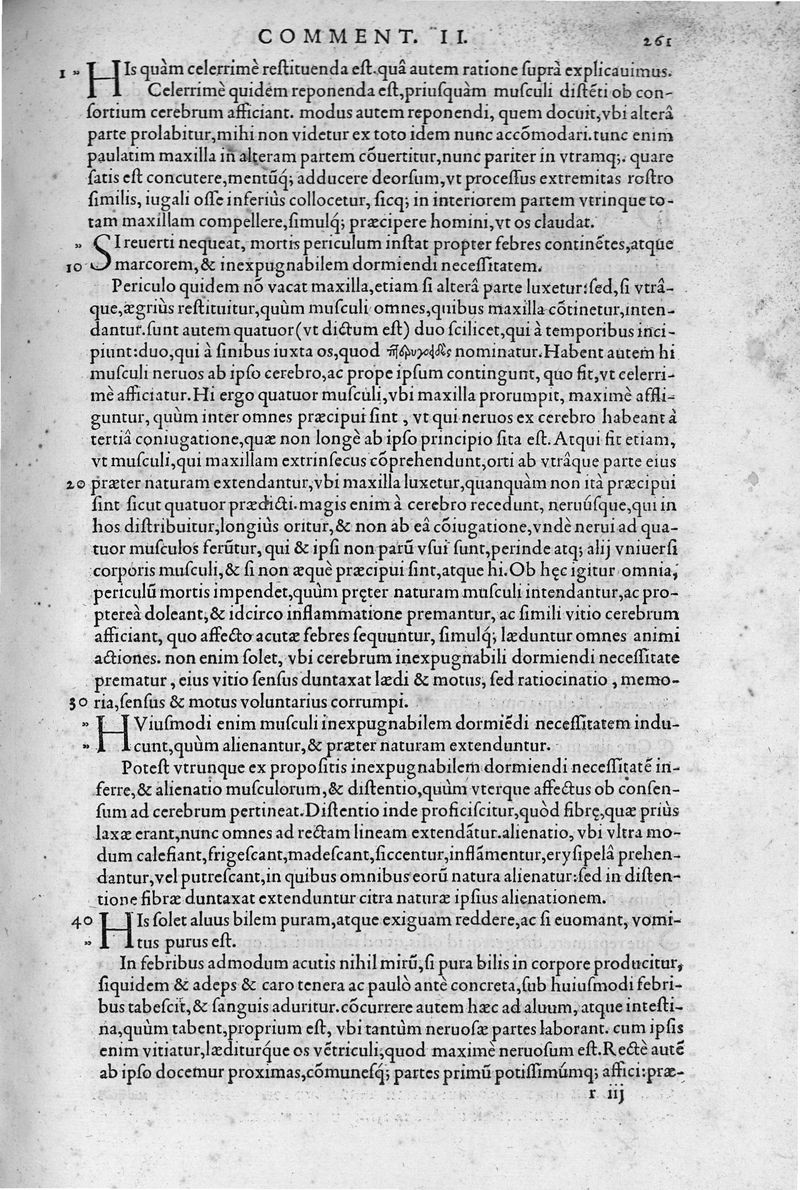 COMMENT. II. 261
1 „ HIs quàm celerrimè reſtituenda eſt. quâ autem ratione ſuprà explicauimus.
Celerrimè quidem reponenda eſt, priuſquàm muſculi diſtẽti ob con-
ſortium cerebrum afficiant. modus autem reponendi, quem docuit, vbi alterâ
parte prolabitur, mihi non videtur ex toto idem nunc accõmodari. tunc enim
paulatim maxilla in alteram partem cõuertitur, nunc pariter in vtramq;. quare
ſatis eſt concutere, mentũq́; adducere deorſum, vt proceſſus extremitas roſtro
ſimilis, iugali oſſe inferiùs collocetur, ſicq; in interiorem partem vtrinque to-
tam maxillam compellere, ſimulq́; præcipere homini, vt os claudat.
„ SI reuerti nequeat, mortis periculum inſtat propter febres continẽtes, atque
10 marcorem, & inexpugnabilem dormiendi neceſſitatem.
Periculo quidem nõ vacat maxilla, etiam ſi alterâ parte luxetur: ſed, ſi vtrâ-
que, ægriùs reſtituitur, quùm muſculi omnes, quibus maxilla cõtinetur, inten-
dantur. ſunt autem quatuor (vt dictum eſt) duo ſcilicet, qui à temporibus inci-
piunt: duo, qui à ſinibus iuxta os, quod nominatur. Habent autem hi
muſculi neruos ab ipſo cerebro, ac prope ipſum contingunt, quo fit, vt celerri-
mè afficiatur. Hi ergo quatuor muſculi, vbi maxilla prorumpit, maximè affli-
guntur, quùm inter omnes præcipui ſint, vt qui neruos ex cerebro habeant à
tertiâ coniugatione, quæ non longè ab ipſo principio ſita eſt. Atqui fit etiam,
vt muſculi, qui maxillam extrinſecus cõprehendunt, orti ab vtrâque parte eius
20 præter naturam extendantur, vbi maxilla luxetur, quanquàm non ità præcipui
ſint ſicut quatuor prædicti. magis enim à cerebro recedunt, neruúſque, qui in
hos diſtribuitur, longiùs oritur, & non ab eâ cõiugatione, vndè nerui ad qua-
tuor muſculos ferũtur, qui & ipſi non parũ vſui ſunt, perinde atq; alij vniuerſi
corporis muſculi, & ſi non æquè præcipui ſint, atque hi. Ob hęc igitur omnia,
periculũ mortis impendet, quùm pręter naturam muſculi intendantur, ac pro-
ptereà doleant, & idcirco inflammatione premantur, ac ſimili vitio cerebrum
afficiant, quo affecto acutæ febres ſequuntur, ſimulq́; læduntur omnes animi
actiones. non enim ſolet, vbi cerebrum inexpugnabili dormiendi neceſſitate
prematur, eius vitio ſenſus duntaxat lædi & motus, ſed ratiocinatio, memo-
30 ria, ſenſus & motus voluntarius corrumpi.
„ HViuſmodi enim muſculi inexpugnabilem dormiẽdi neceſſitatem indu-
„ cunt, quùm alienantur, & præter naturam extenduntur.
Poteſt vtrunque ex propoſitis inexpugnabilem dormiendi neceſſitatẽ in-
ferre, & alienatio muſculorum, & diſtentio, quùm vterque affectus ob conſen-
ſum ad cerebrum pertineat. Diſtentio inde proficiſcitur, quòd fibrę, quæ priùs
laxæ erant, nunc omnes ad rectam lineam extendãtur. alienatio, vbi vltra mo-
dum calefiant, frigeſcant, madeſcant, ſiccentur, inflãmentur, eryſipelâ prehen-
dantur, vel putreſcant, in quibus omnibus eorũ natura alienatur: ſed in diſten-
tione fibræ duntaxat extenduntur citra naturæ ipſius alienationem.
40 HIs ſolet aluus bilem puram, atque exiguam reddere, ac ſi euomant, vomi-
„ tus purus eſt.
In febribus admodum acutis nihil mirũ, ſi pura bilis in corpore producitur,
ſiquidem & adeps & caro tenera ac paulò antè concreta, ſub huiuſmodi febri-
bus tabeſcit, & ſanguis aduritur. cõcurrere autem hæc ad aluum, atque inteſti-
na, quùm tabent, proprium eſt, vbi tantùm neruoſæ partes laborant. cum ipſis
enim vitiatur, læditurq́ue os vẽtriculi, quod maximè neruoſum eſt. Rectè autẽ
ab ipſo docemur proximas, cõmuneſq́; partes primũ potiſſimúmq; affici: præ-
r iij